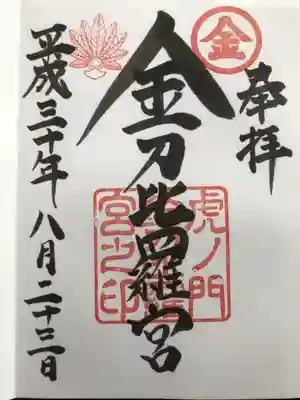 奉拝
金
金刀比羅宮
虎ノ門
宮之印
平成三十年八月二十三日